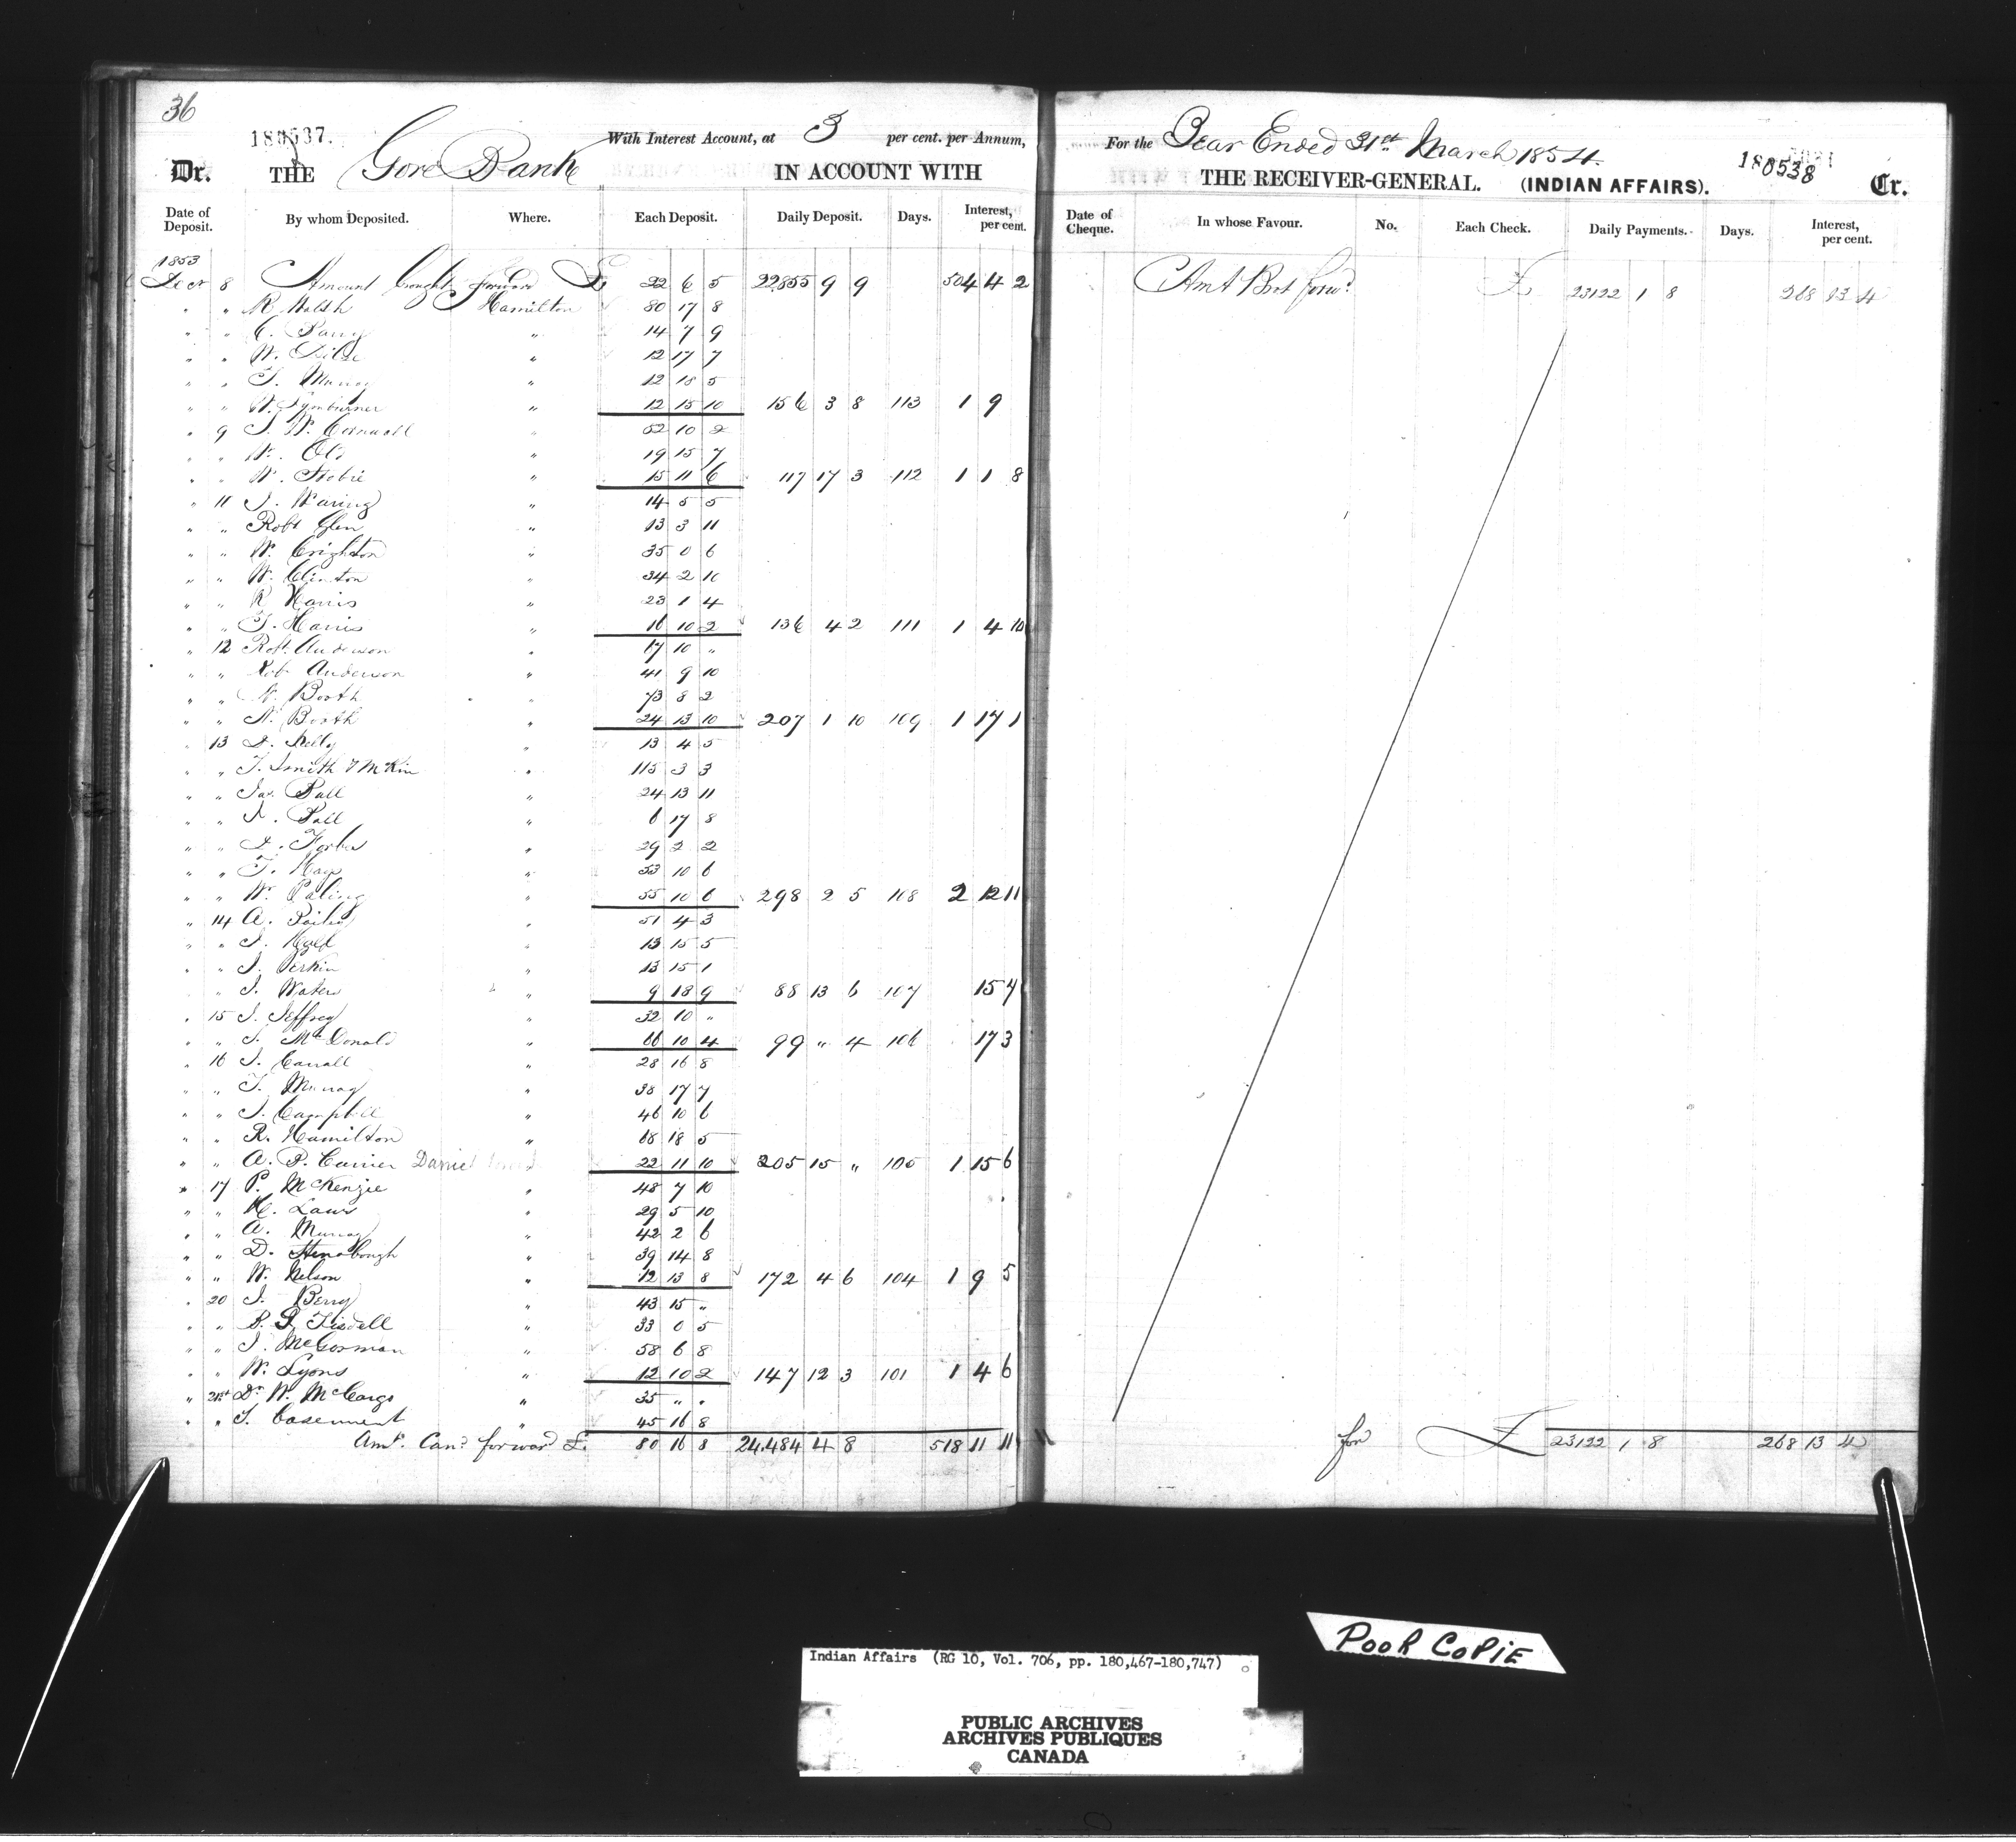 36
180537.
With Interest Account, at 3 per cent. per Annum,
Dr. THE Gore Bank IN ACCOUNT WITH
Date of Deposit. By whom Deposited. Where. Each Deposit. Daily Deposit. Days. Interest, per cent.
1853
Decr 8 Amount brought forward £ 22 6 5 22,855 9 9 504 4 2
" " R. Walsh Hamilton 80 17 8
" " " 14 7 9
" " W. " 12 17 7
" " T. Murray " 12 18 5
" " W. Lymburner " 12 15 10 156 3 8 113 1 9
" 9 J. W. Cornwall " 82 10 2
" " W. " 19 15 7
" " W. Stobie " 15 11 6 117 17 3 112 1 1 8
" 11 J. Waring " 14 5 5
" " Robt Glen " 13 3 11
" " W. Crighton " 35 0 6
" " W. Clinton " 34 2 10
" " R. Harris " 23 1 4
" " T. Harris " 16 10 2 136 4 2 111 1 4 10
" 12 Robt. Anderson " 17 10 "
" " Robt Anderson " 41 9 10
" " N. Booth " 73 8 2
" " N. Booth " 24 13 10 207 1 10 109 1 17 1
" 13 D. Kelly " 13 4 5
" " T. Smith & McKim " 115 3 3
" " Jas. Ball " 24 13 11
" " A. Ball " 6 17 8
" " D. Forbes " 29 2 2
" " T. " 53 10 6
" " W. Paling " 55 10 6 298 2 5 108 2 12 11
" 14 A. " 51 4 3
" " J. " 13 15 5
" " J. Perkin " 13 15 1
" " J. Waters " 9 18 9 88 13 6 107 15 7
" 15 J. Jeffrey " 32 10 "
" " J. McDonald " 66 10 4 99 " 4 106 17 3
" 16 J. Carrall " 28 16 8
" " T. Murray " 38 17 7
" " J. Campbell " 46 10 6
" " R. Hamilton " 68 18 5
" " A. P. Currier Daniel 22 11 10 205 15 " 105 1 15 6
" 17 P. McKenzie " 48 7 10
" " H. Laws " 29 5 10
" " A. Murray " 42 2 6
" " D. Stenabough " 39 14 8
" " W. Nelson " 12 13 8 172 4 6 104 1 9 5
" 20 J. Berry " 43 15 "
" " Tisdell " 33 0 5
" " J. McGorman " 58 6 8
" " W. Lyons " 12 10 2 147 12 3 101 1 4 6
" 21st Dr. W. McCargo " 35 " "
" " T. Casement " 45 16 8
Amt. Card forward £ 80 16 8 24,484 4 8 518 11 11
For the Year Ended 31st March 1854.
THE RECEIVER-GENERAL. (INDIAN AFFAIRS). 180538 Cr.
Date of Cheque. In whose Favour. No. Each Check. Daily Payments. Days. Interest, per cent.
Amt Brot forwd £ 23122 1 8 268 13 4
for £ 23122 1 8 268 13 4
POOR COPIE
Indian Affairs (RG 10, Vol. 706, pp. 180,467-180,747)
PUBLIC ARCHIVES
ARCHIVES PUBLIQUES
CANADA